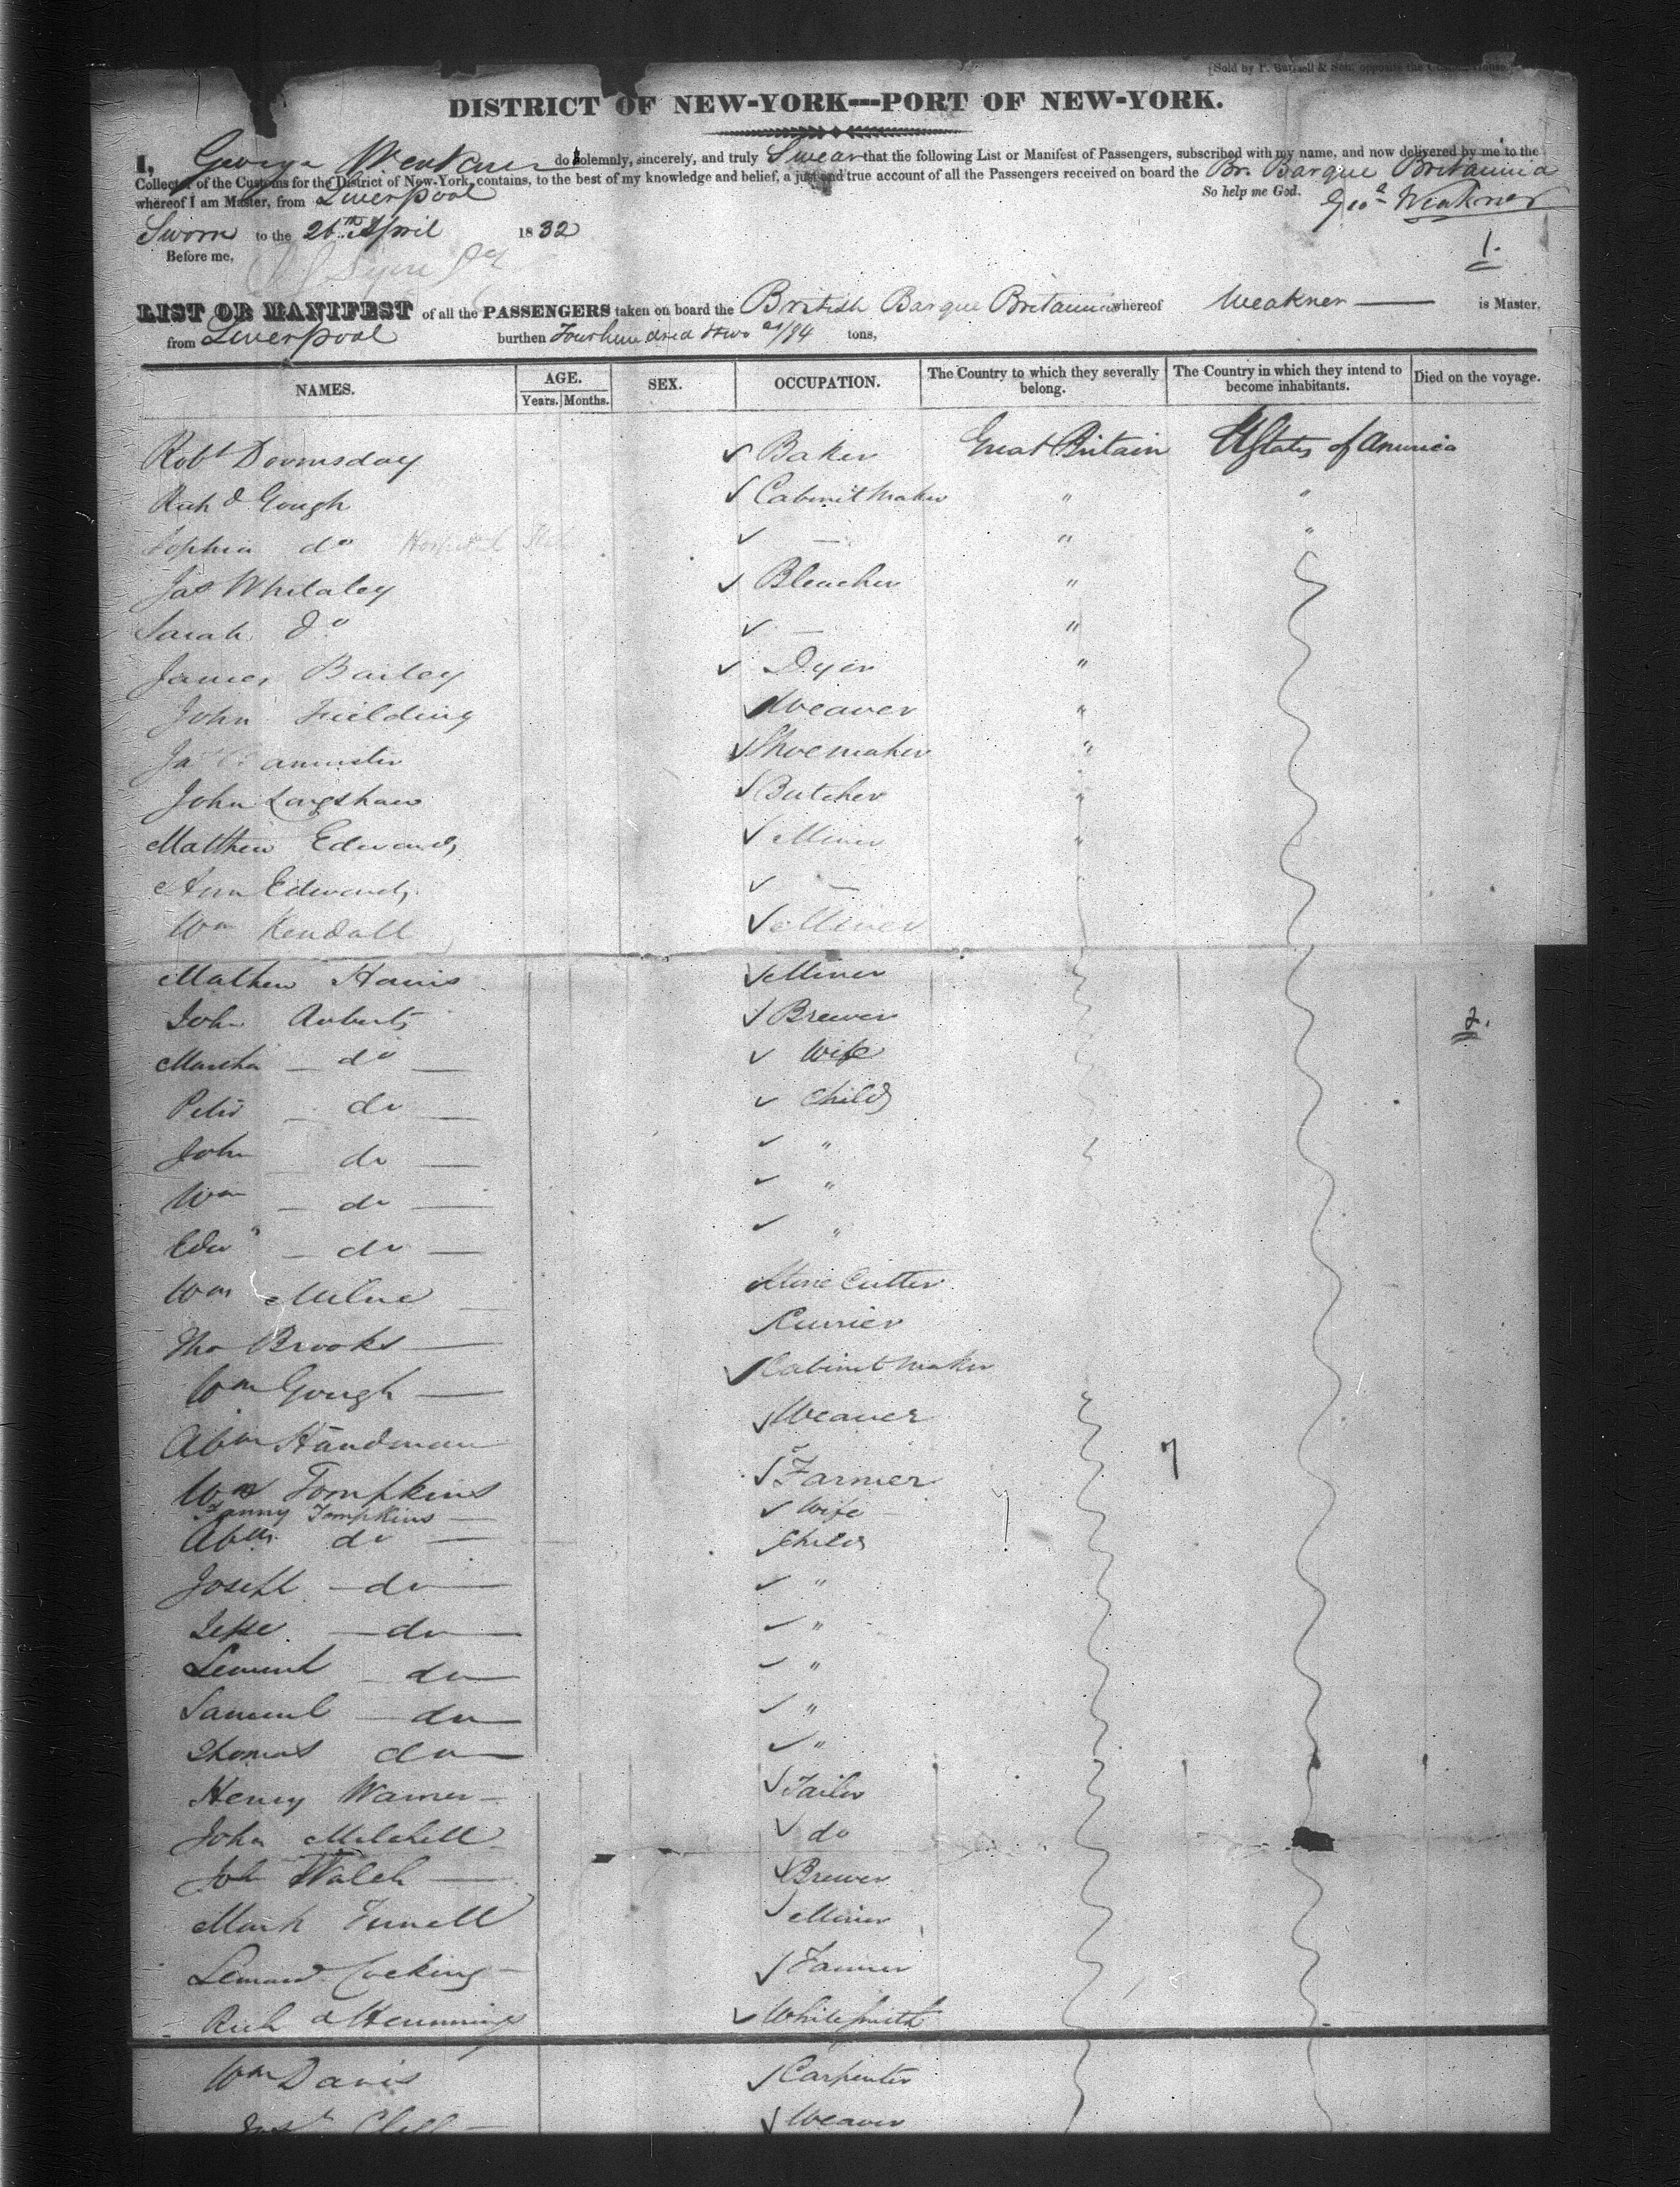 [Sold by P. Burtsell & Son, opposite the Custom House.
DISTRICT OF NEW-YORK---PORT OF NEW-YORK.
I, George Weakner do solemnly, sincerely, and truly Swear that the following List or Manifest of Passengers, subscribed with my name, and now delivered by me to the
Collector of the Customs for the District of New-York, contains, to the best of my knowledge and belief, a just and true account of all the Passengers received on board the Br. Barque Britannia
whereof I am Master, from Liverpool So help me God. Geo Weakner
Sworn to the 26th April 1832
Before me,
1.
LIST OR MANIFEST of all the PASSENGERS taken on board the British Barque Britannia whereof Weakner is Master,
from Liverpool burthen Four hundred & two /94 tons,
NAMES. AGE. Years. Months. SEX. OCCUPATION. The Country to which they severally belong. The Country in which they intend to become inhabitants. Died on the voyage.
Robt Doomsday Baker Great Britain UStates of America
Richd Gough Cabinet Maker " "
Sophia do — " "
Jas Whitaley Bleacher "
Sarah Do — "
James Bailey Dyer "
John Fielding Weaver "
Ja Shoemaker "
John Langshaw Butcher "
Matthew Edwards Miner "
Ann Edwards — "
Wm Kendall Miner
Mathew Harris Miner
John Roberts Brewer 2.
Martha — do — Wife
Peter — do — Child
John — do — "
Wm — do — "
Edwd — do — "
Wm Milne — Stone Cutter
Tho Brooks — Currier
Wm Gough — Cabinet Maker
Abm Handman Weaver
Wm Tompkins Farmer
Fanny Tompkins — Wife
Abm do — Child
Joseph — do — "
Jesse — do — "
Lemuel — do "
Samuel — do "
Thomas do "
Henry Warner — Tailor
John Mitchell do
Joh Walsh — Brewer
Mark Miner
Cocking — Farmer
Richd Hemmings Whitesmith
Wm Davis Carpenter
Weaver